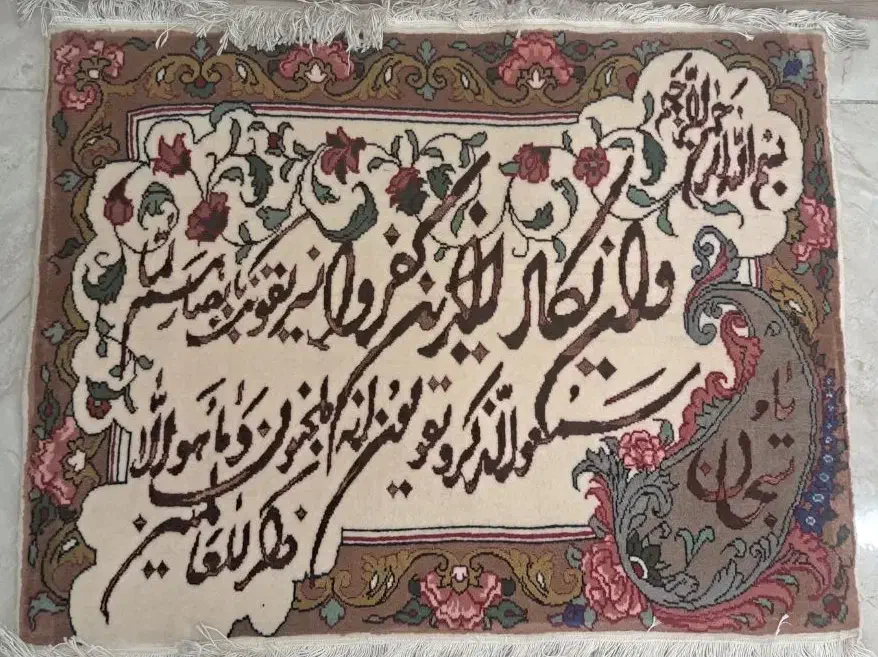 بسم الله الرحمن الرحیم
وان یکاد الذین کفروا لیزلقونک بابصارهم لما
سمعوا الذکر و یقولون انه لمجنون و ما هو الا
ذکر للعالمین
یا سبحان